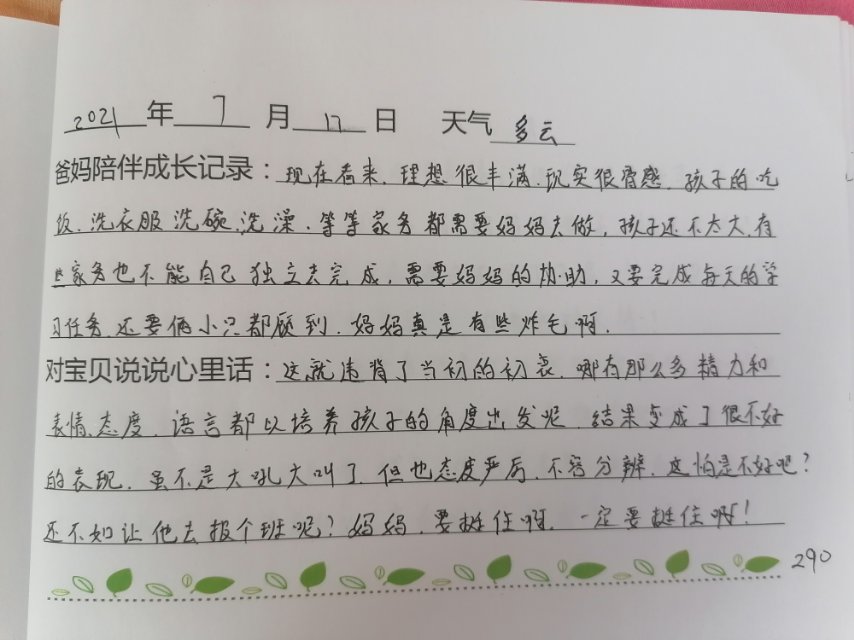 2021年 7月 17日 天气 多云
爸妈陪伴成长记录：现在看来，理想很丰满，现实很骨感，孩子的吃
饭、洗衣服、洗碗、洗澡，等等家务都需要妈妈去做，孩子还不太大，有
些家务也不能自己独立去完成，需要妈妈的协助，又要完成每天的学
习任务，还要俩小只都顾到，妈妈真是有些炸毛啊。
对宝贝说说心里话：这就违背了当初的初衷，哪有那么多精力和
表情、态度、语言都以培养孩子的角度出发呢，结果变成了很不好
的表现，虽不是大吼大叫了，但也态度严厉，不容分辨，这怕是不好吧？
还不如让他去报个班呢？妈妈，要挺住啊，一定要挺住啊！
290